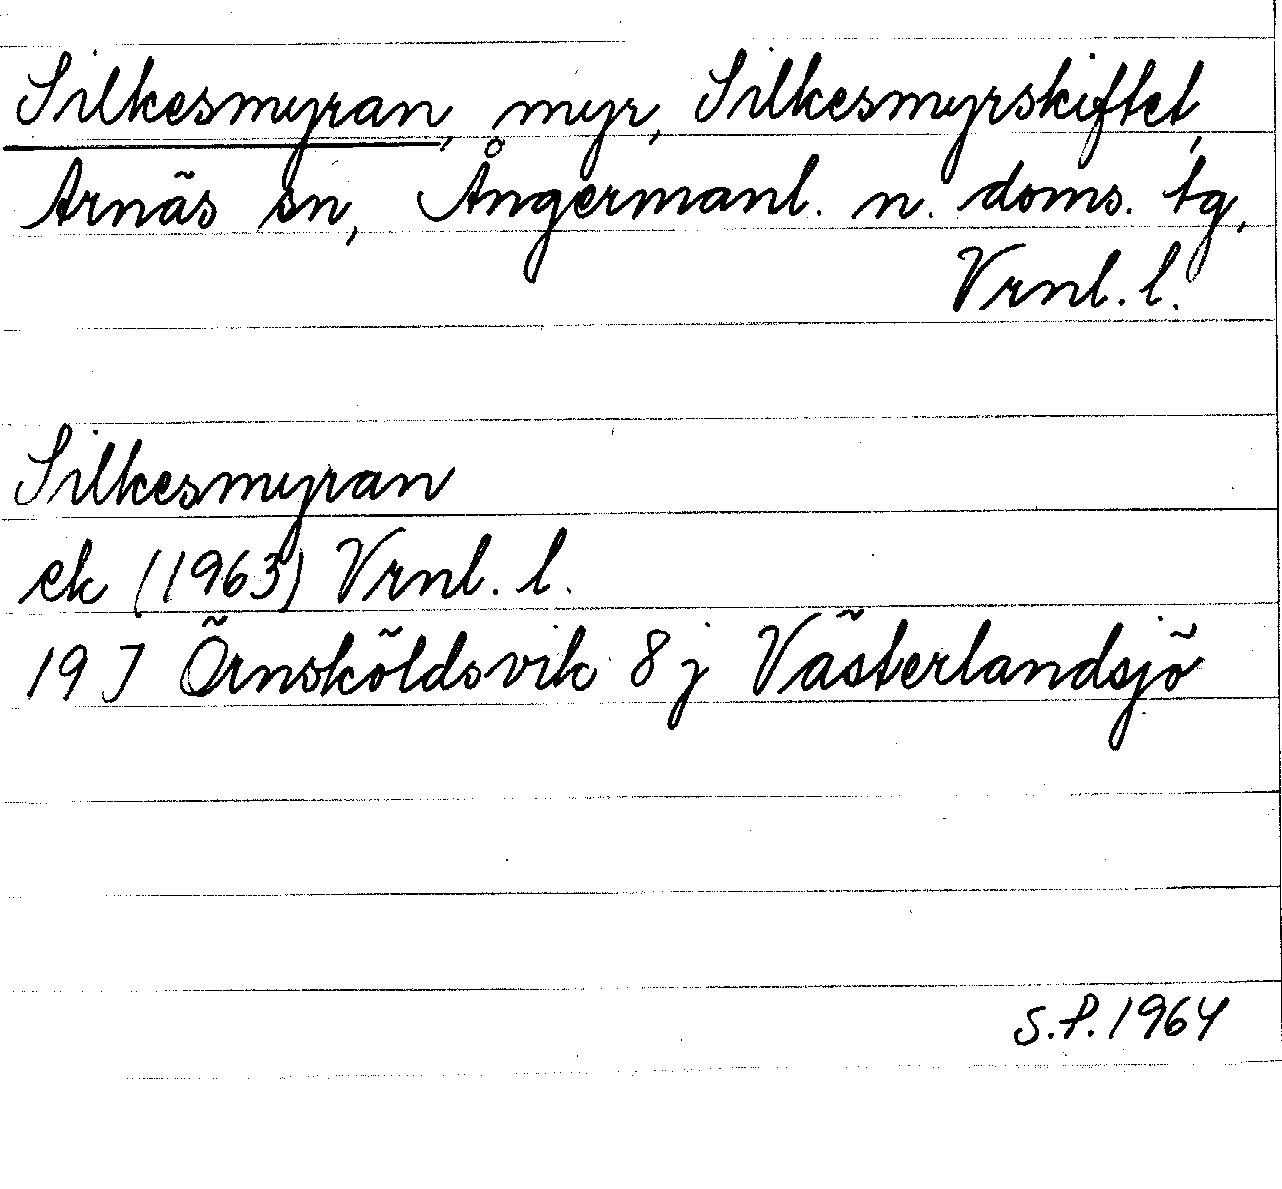 Silkesmyran, myr, Silkesmyrskiftet,
Arnäs sn, Ångermanl. n. doms. tg,
Vrnl. l.
Silkesmyran
ek (1963) Vrnl. l.
19 J Örnsköldsvik 8 j Västerlandsjö
S.P. 1964